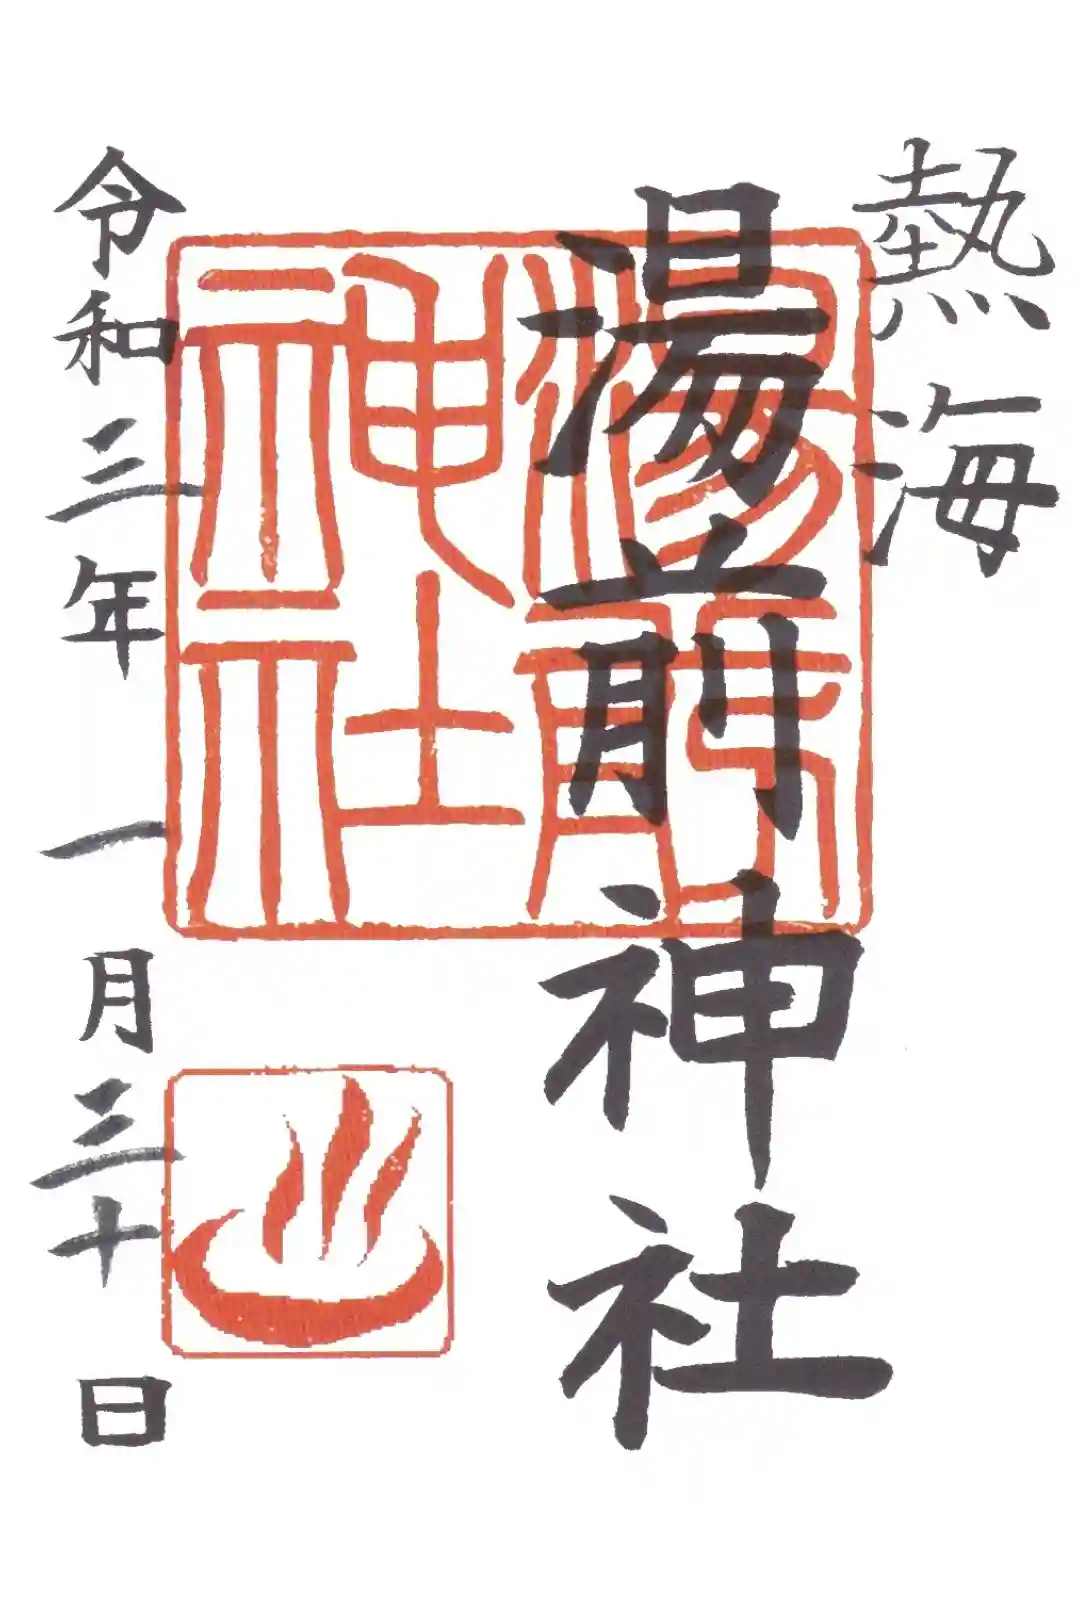 熱海
湯前神社
湯前神社
令和三年一月三十日